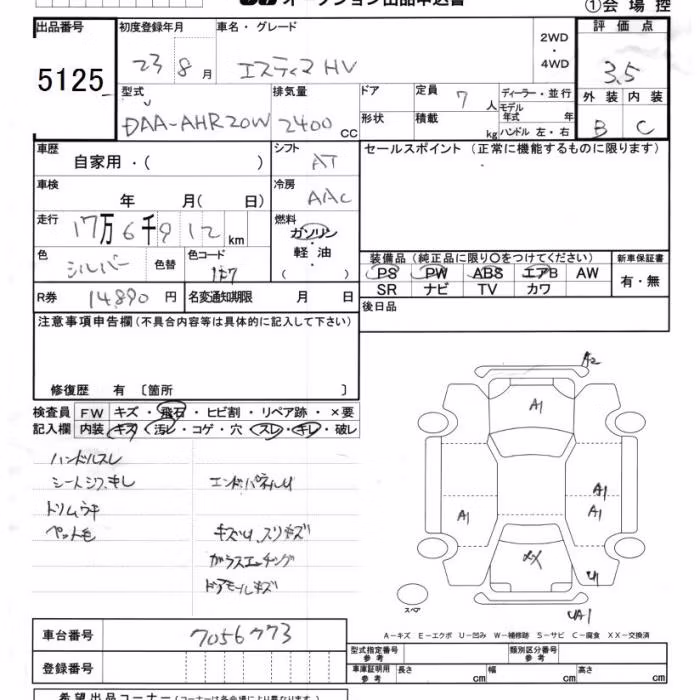 オークション出品申込書
①会場控
出品番号 初度登録年月 車名・グレード 2WD・4WD 評価点
5125 23 8月 エスティマHV 3.5
型式 排気量 ドア 定員 7人 ディーラー・並行 外装 内装
DAA-AHR20W 2400cc 形状 積載 kg モデル年式 年 ハンドル 左・右 B C
車歴 自家用・( ) シフト AT セールスポイント(正常に機能するものに限ります)
車検 年 月( 日) 冷房 AAC
走行 17万6千912km 燃料 ガソリン・軽油 ( )
色 シルバー 色替 色コード 1F7 装備品(純正品に限り〇をつけてください) 新車保証書
PS PW ABS エアB AW 有・無
R券 14,890円 名変通知期限 月 日 SR ナビ TV カワ
注意事項申告欄(不具合内容等は具体的に記入して下さい) 後日品
修復歴 有 〔箇所 〕
検査員 FW キズ・飛石・ヒビ割・リペア跡・×要
記入欄 内装 キズ・汚レ・コゲ・穴・スレ・キレ・破レ
ハンドルスレ
シートシワ、キレ エンドパネルU
トリムウキ
ペット毛 キズU、スリキズ
ガラスエッチング
ドアモールキズ
A2
A1
A1
A1 A1
XX U1
スペア UA1
A-キズ E-エクボ U-凹み W-補修跡 S-サビ C-腐食 XX-交換済
車台番号 7056773
登録番号
型式指定番号 参考 類別区分番号 参考
車庫証明用 参考 長さ cm 幅 cm 高さ cm
希望出品コーナー(コーナーは各会場により異なります)